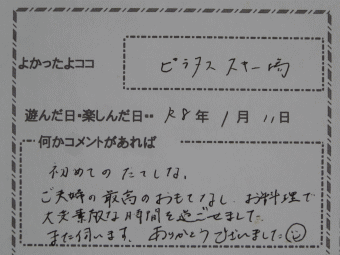 よかったよココ ピラタススキー場
遊んだ日・楽しんだ日・・ R8年1月11日
何かコメントがあれば
初めてのたてしな。
ご夫婦の最高のおもてなし、お料理で
大変素敵な時間を過ごせました。
また伺います。ありがとうございました